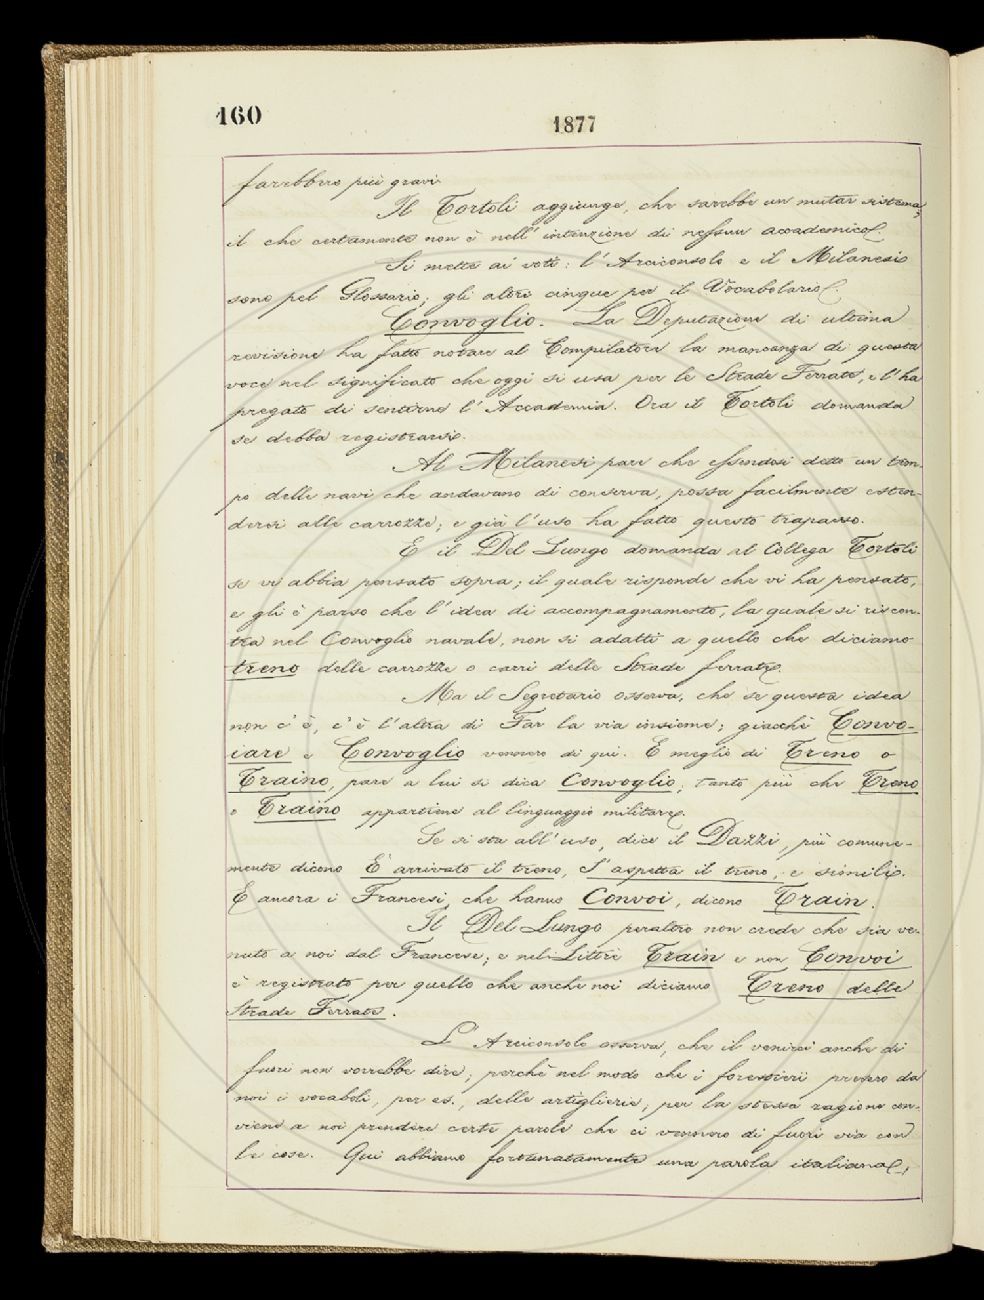 160
1877
farebbero più gravi.
Il Tortoli aggiunge, che sarebbe un mutar sistema;
il che certamente non è nell' intenzione di nessun accademico.
Si mette ai voti: l' Arciconsolo e il Milanesi
sono pel Glossario; gli altri cinque per il Vocabolario.
Convoglio. La Deputazione di ultima
revisione ha fatto notare al Compilatore la mancanza di questa
voce nel significato che oggi si usa per le Strade Ferrate, e l' ha
pregato di sentirne l' Accademia. Ora il Tortoli domanda
se debba registrarsi.
Al Milanesi pare che essendosi detto un tem-
po delle navi che andavano di conserva, possa facilmente esten-
dersi alle carrozze; e già l' uso ha fatto questo trapasso.
E il Del Lungo domanda al Collega Tortoli
se vi abbia pensato sopra; il quale risponde che vi ha pensato,
e gli è parso che l' idea di accompagnamento, la quale si riscon-
tra nel Convoglio navale, non si adatti a quello che diciamo
treno delle carrozze o carri delle Strade ferrate.
Ma il Segretario osserva, che se questa idea
non c' è, c' è l' altra di Far la via insieme; giacchè Convo-
iare e Convoglio vennero di qui. E meglio di Treno o
Traino, pare a lui si dica Convoglio; tanto più che Treno
o Traino appartiene al linguaggio militare.
Se si sta all' uso, dice il Dazzi, più comune-
mente dicono È arrivato il treno, S' aspetta il treno, e simili.
E ancora i Francesi, che hanno Convoi, dicono Train.
Il Del Lungo peraltro non crede che sia ve-
nuto a noi dal Francese; e nel Littré Train e non Convoi
è registrato per quello che anche noi diciamo Treno delle
Strade Ferrate.
L' Arciconsolo osserva, che il venirci anche di
fuori non vorrebbe dire; perchè nel modo che i forestieri presero da
noi i vocaboli, per es., delle artiglierie; per la stessa ragione con-
viene a noi prendere certe parole che ci vennero di fuori via con
le cose. Qui abbiamo fortunatamente una parola italiana,